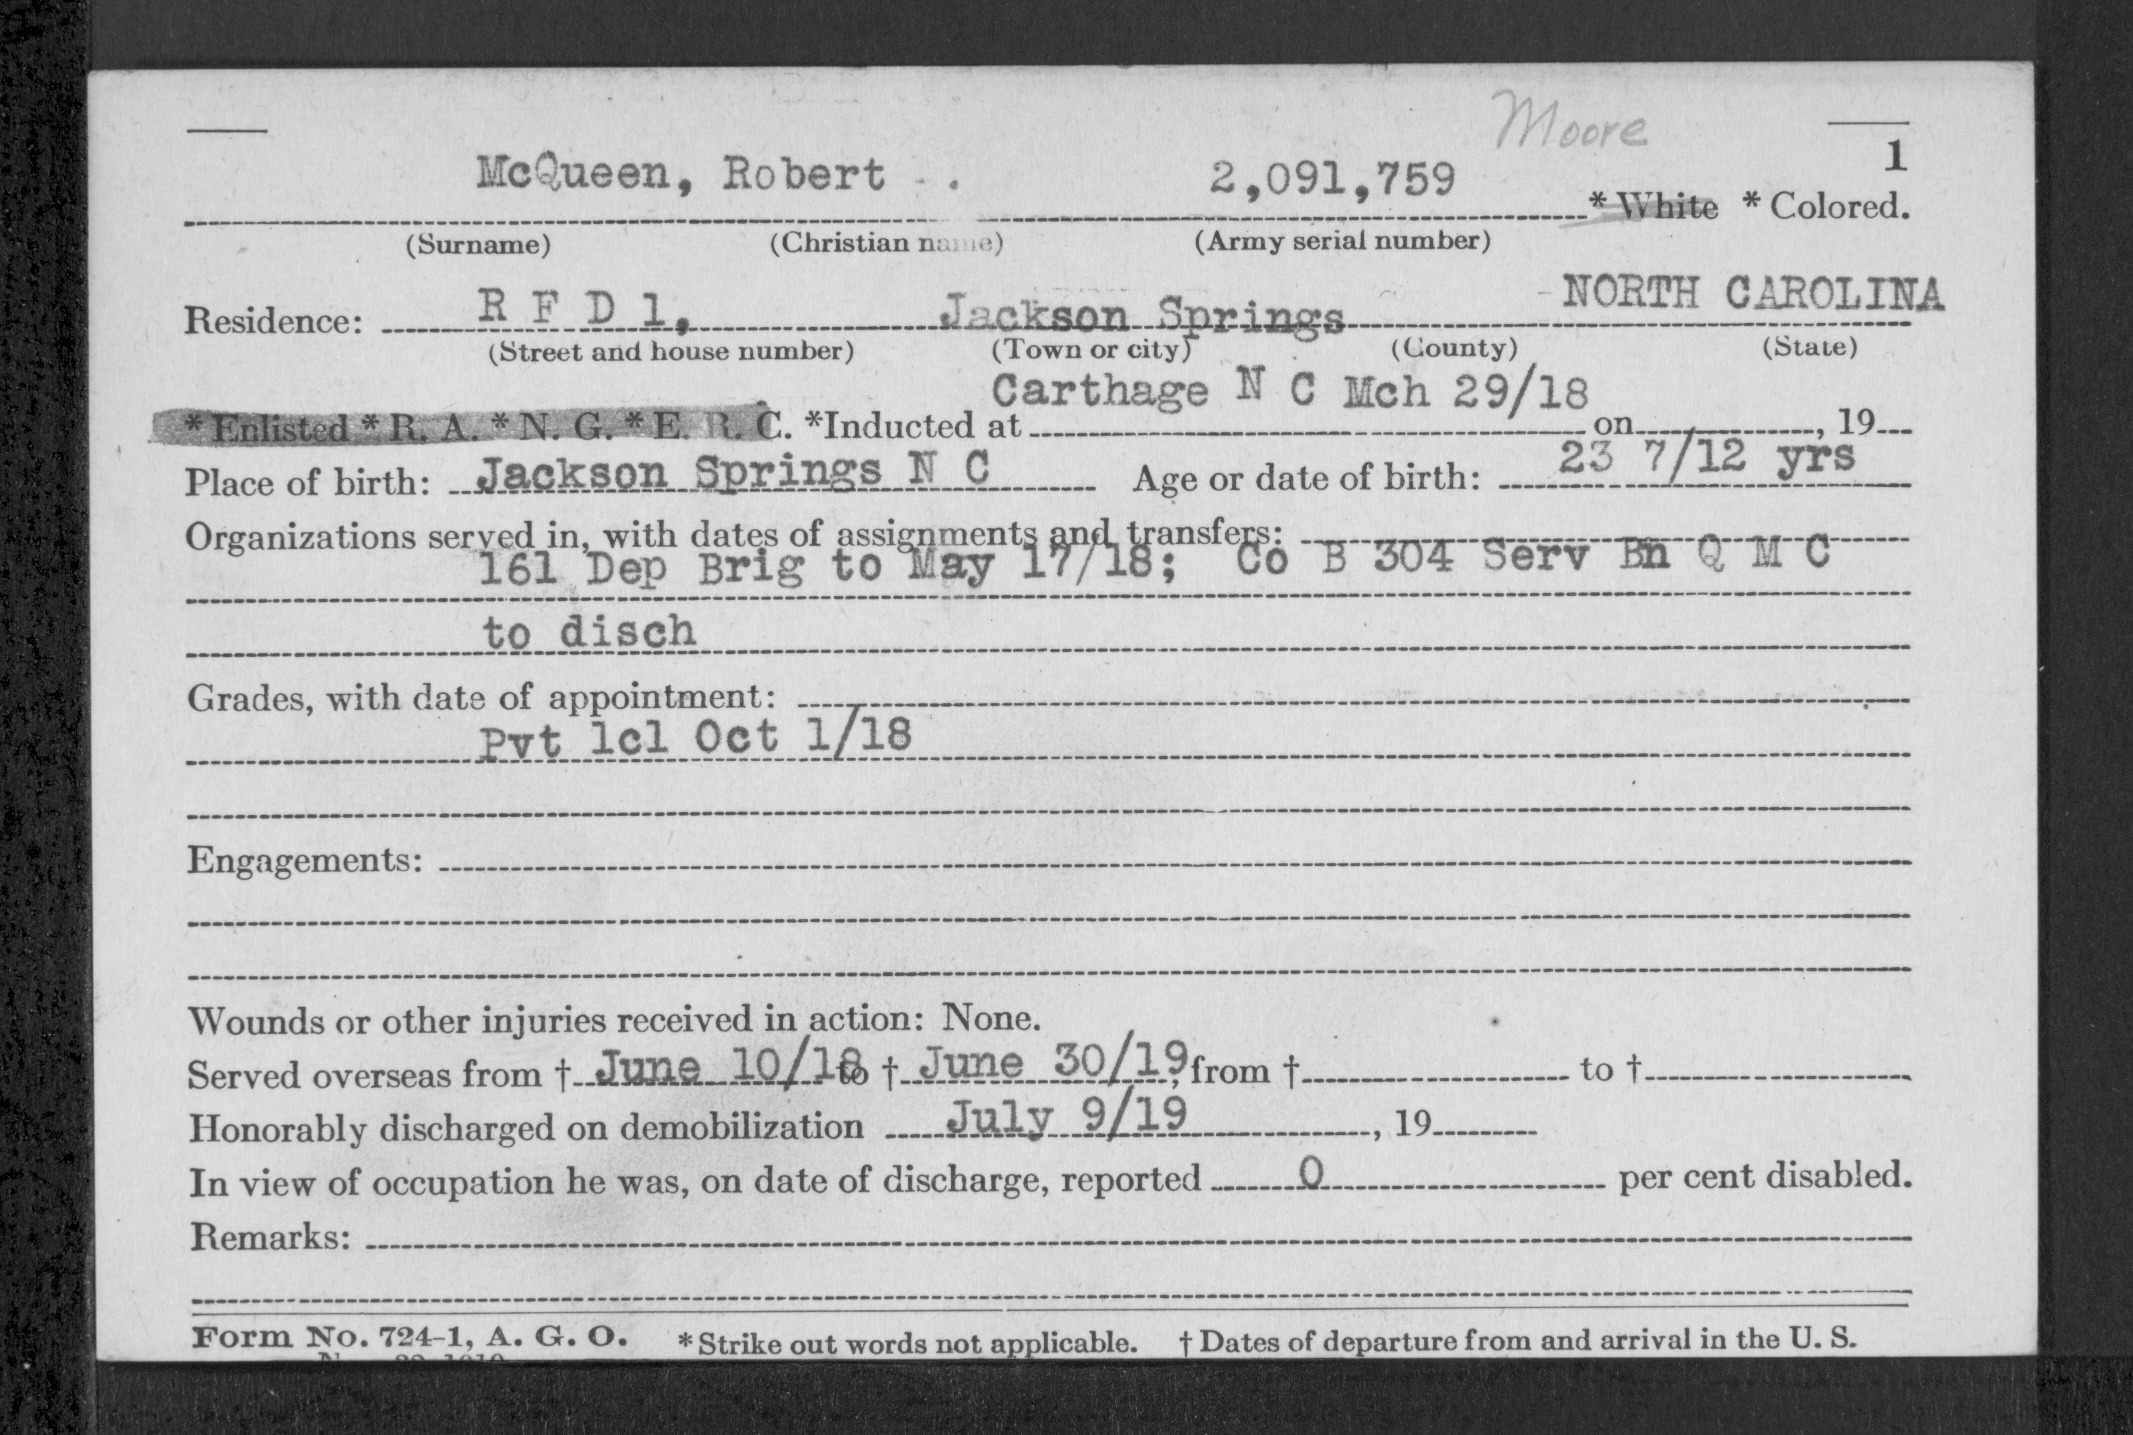 Moore
1
McQueen, Robert 2,091,759 * White * Colored.
(Surname) (Christian name) (Army serial number)
Residence: R F D 1, Jackson Springs NORTH CAROLINA
(Street and house number) (Town or city) (County) (State)
Carthage N C Mch 29/18
* Enlisted * R. A. * N. G. * E. R. C. *Inducted at on , 19
Place of birth: Jackson Springs N C Age or date of birth: 23 7/12 yrs
Organizations served in, with dates of assignments and transfers:
161 Dep Brig to May 17/18; Co B 304 Serv Bn Q M C
to disch
Grades, with date of appointment:
Pvt 1cl Oct 1/18
Engagements:
Wounds or other injuries received in action: None.
Served overseas from † June 10/18 to † June 30/19, from † to †
Honorably discharged on demobilization July 9/19 , 19
In view of occupation he was, on date of discharge, reported 0 per cent disabled.
Remarks:
Form No. 724-1, A. G. O. * Strike out words not applicable. † Dates of departure from and arrival in the U. S.